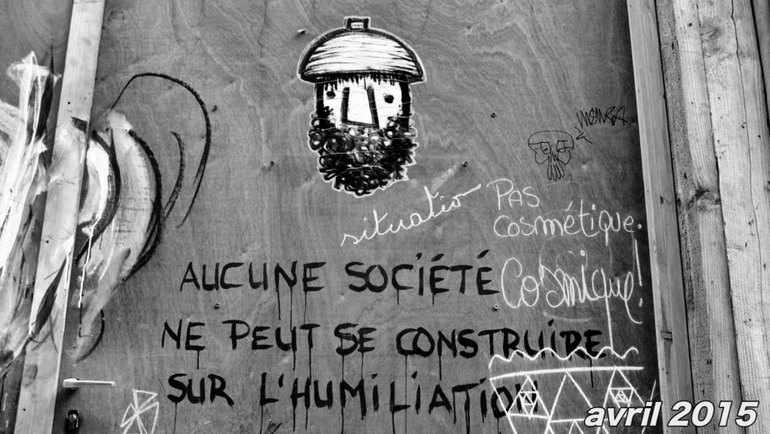 situatio
PAS
cosmétique.
Cosmique!
AUCUNE SOCIÉTÉ
NE PEUT SE CONSTRUIRE
SUR L'HUMILIATION
avril 2015